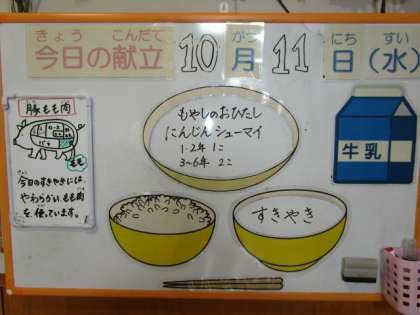 きょう こんだて
今日の献立
10
がつ
月
11
にち すい
日(水)
豚もも肉
もも
今日のすきやきには、
やわらかい、もも肉
を使っています。
もやしのおひたし
にんじんシューマイ
1・2年 1こ
3~6年 2こ
牛乳
すきやき